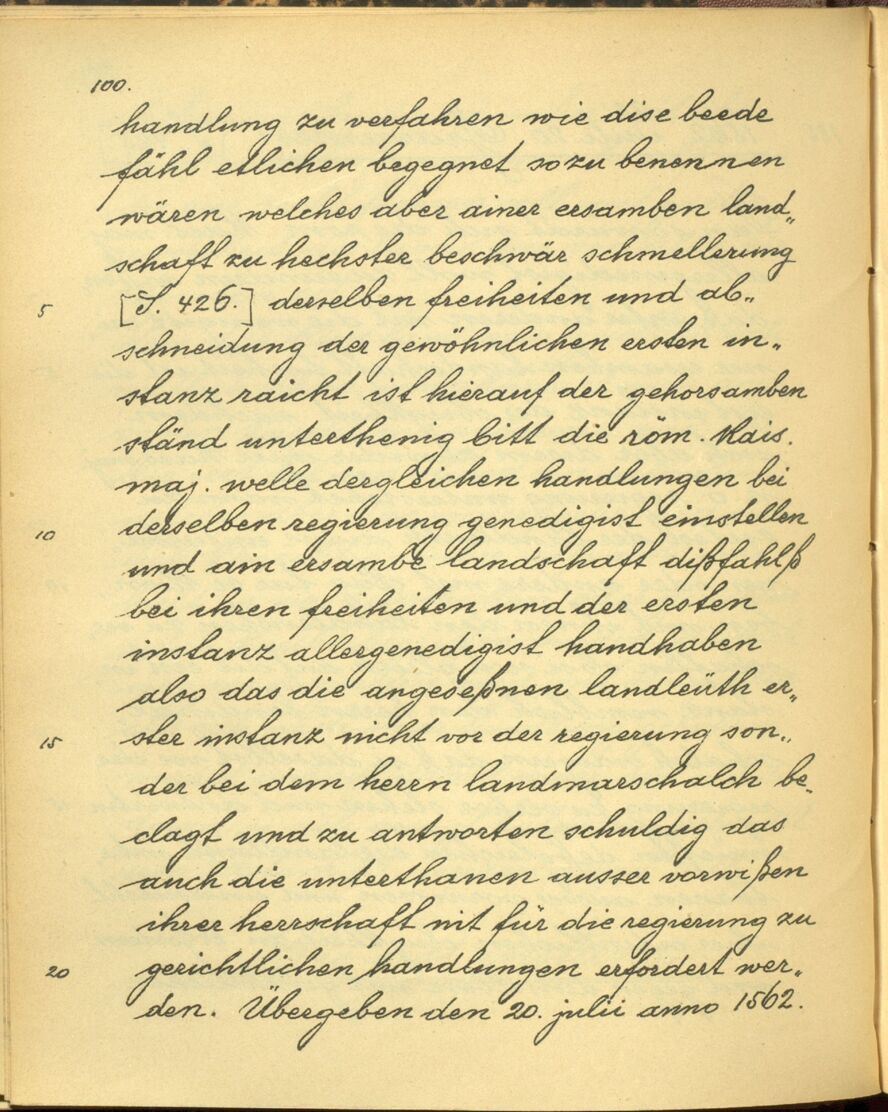 100.
handlung zu verfahren wie dise beede
fähl etlichen begegnet so zu benennen
wären welches aber ainer ersamben land„
schaft zu hechster beschwär schmellerung
5 [S. 426.] derselben freiheiten und ab„
schneidung der gewöhnlichen ersten in„
stanz raicht ist hierauf der gehorsamben
ständ unterthenig bitt die röm. Kais.
maj. welle dergleichen handlungen bei
10 derselben regierung genedigist einstellen
und ain ersambe landschaft dißfahlß
bei ihren freiheiten und der ersten
instanz allergenedigist handhaben
also das die angeseßnen landleüth er„
15 ster instanz nicht vor der regierung son„
der bei dem herrn landmarschalch be„
clagt und zu antworten schuldig das
auch die unterthanen ausser vorwißen
ihrer herrschaft nit für die regierung zu
20 gerichtlichen handlungen erfordert wer„
den. Übergeben den 20. julii anno 1562.